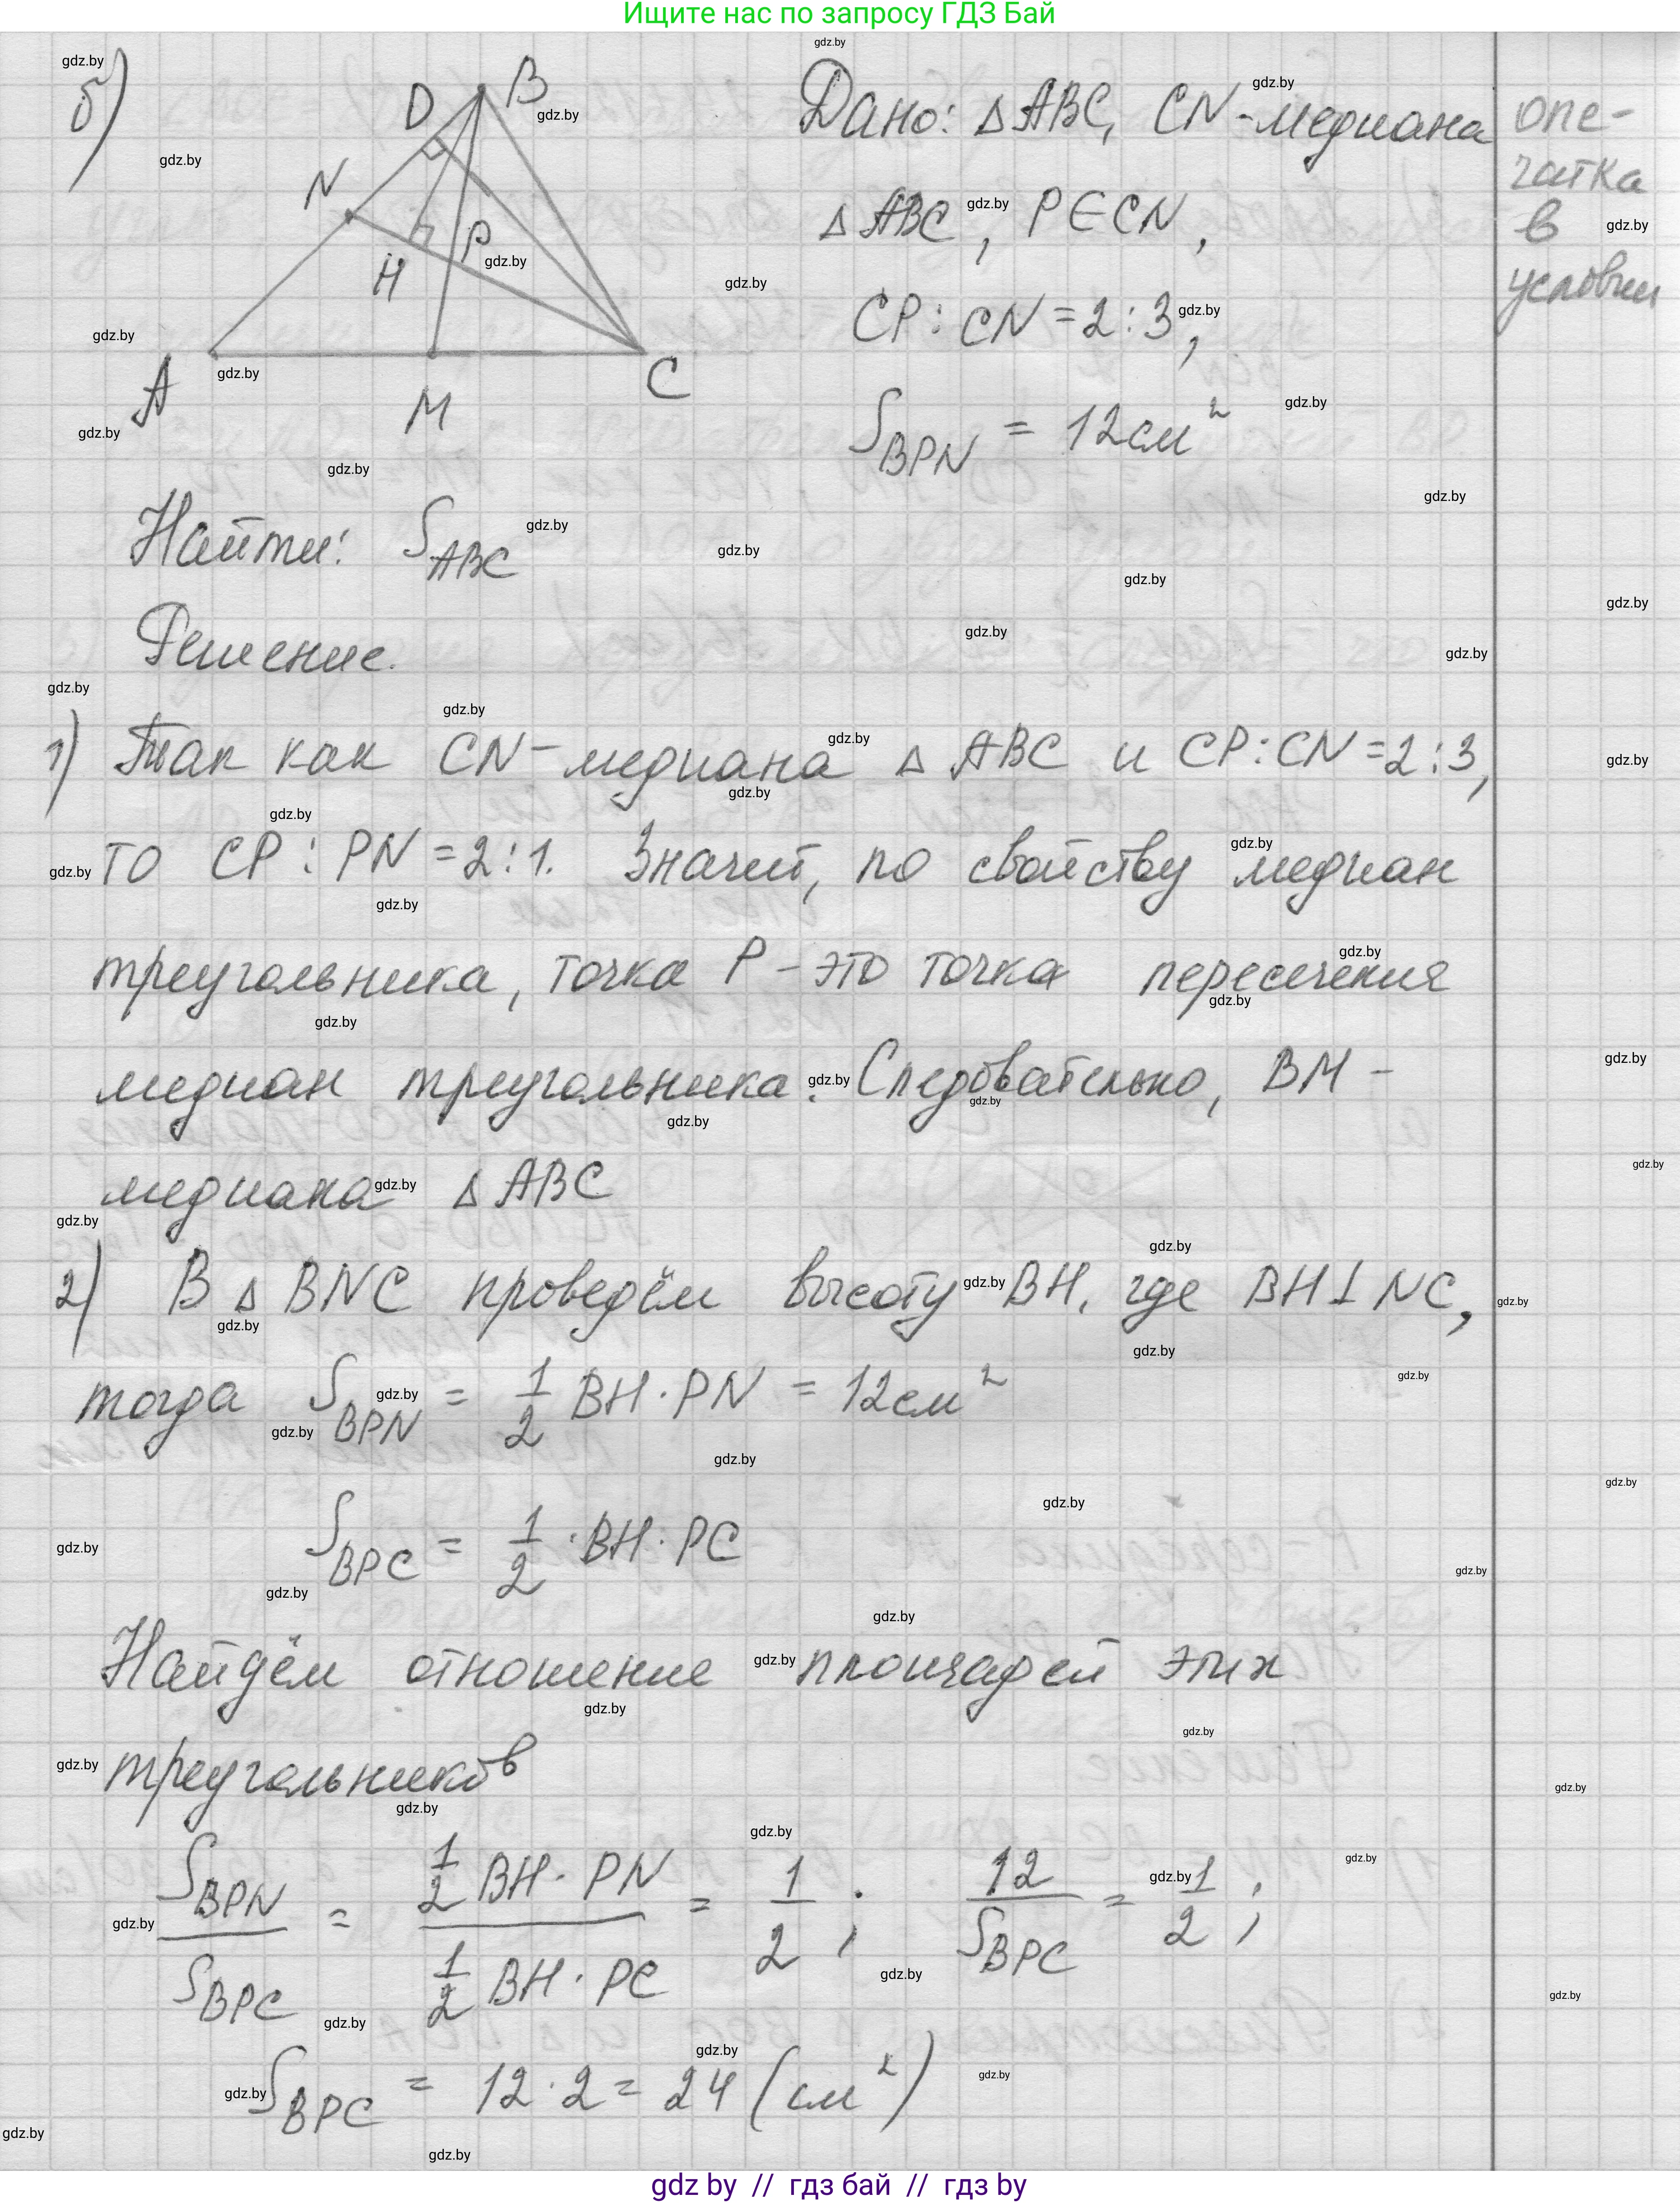 Ищите нас по запросу ГДЗ Бай
б)
D B
N
H P
A M C
Дано: △ABC, CN-медиана
△ABC, P∈CN,
CP:CN=2:3,
S_BPN = 12см²
опе-
чатка
в
условии
Найти: S_ABC
Решение.
1) Так как CN-медиана △ABC и CP:CN=2:3,
то CP:PN=2:1. Значит, по свойству медиан
треугольника, точка P - это точка пересечения
медиан треугольника. Следовательно, BM -
медиана △ABC
2) В △BNC проведём высоту BH, где BH⊥NC,
тогда S_BPN = 1/2 BH·PN = 12см²
S_BPC = 1/2 ·BH·PC
Найдём отношение площадей этих
треугольников
S_BPN/S_BPC = (1/2 BH·PN)/(1/2 BH·PC) = 1/2; 12/S_BPC = 1/2;
S_BPC = 12·2=24 (см²)
gdz by // гдз бай // гдз by